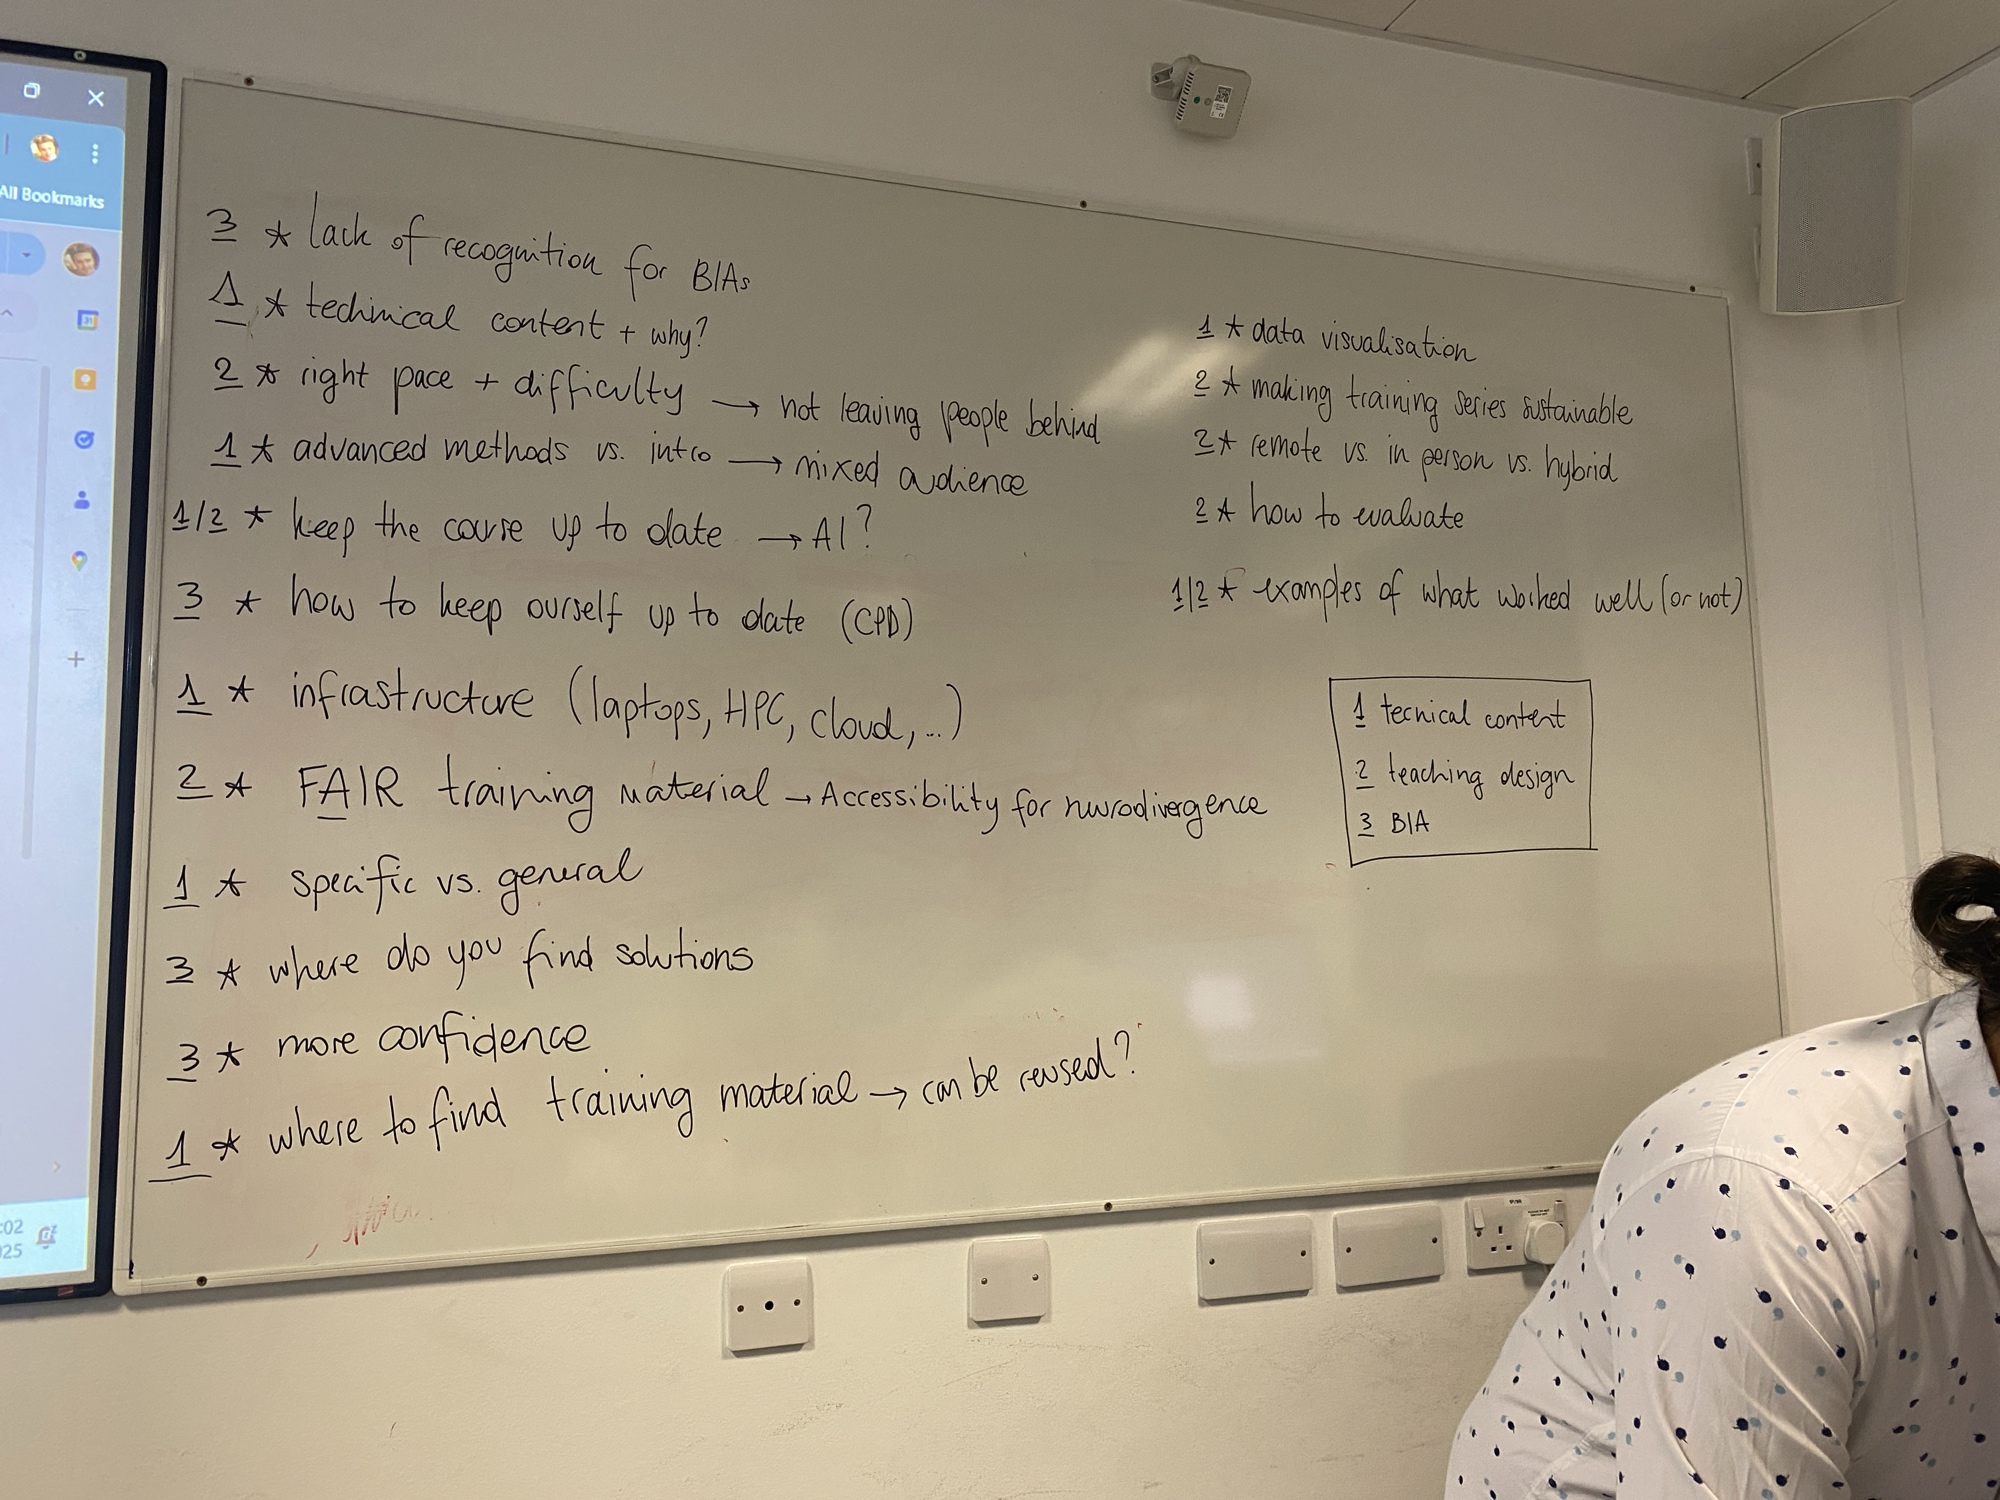 All Bookmarks
31
:02
025
3 * lack of recognition for BIAs
1 * technical content + why?
2 * right pace + difficulty → not leaving people behind
1 * advanced methods vs. intro → mixed audience
1/2 * keep the course up to date → AI?
3 * how to keep ourself up to date (CPD)
1 * infrastructure (laptops, HPC, cloud, ...)
2 * FAIR training material → Accessibility for neurodivergence
1 * specific vs. general
3 * where do you find solutions
3 * more confidence
1 * where to find training material → can be reused?
1 * data visualisation
2 * making training series sustainable
2 * remote vs. in person vs. hybrid
2 * how to evaluate
1/2 * examples of what worked well (or not)
1 tecnical content
2 teaching design
3 BIA